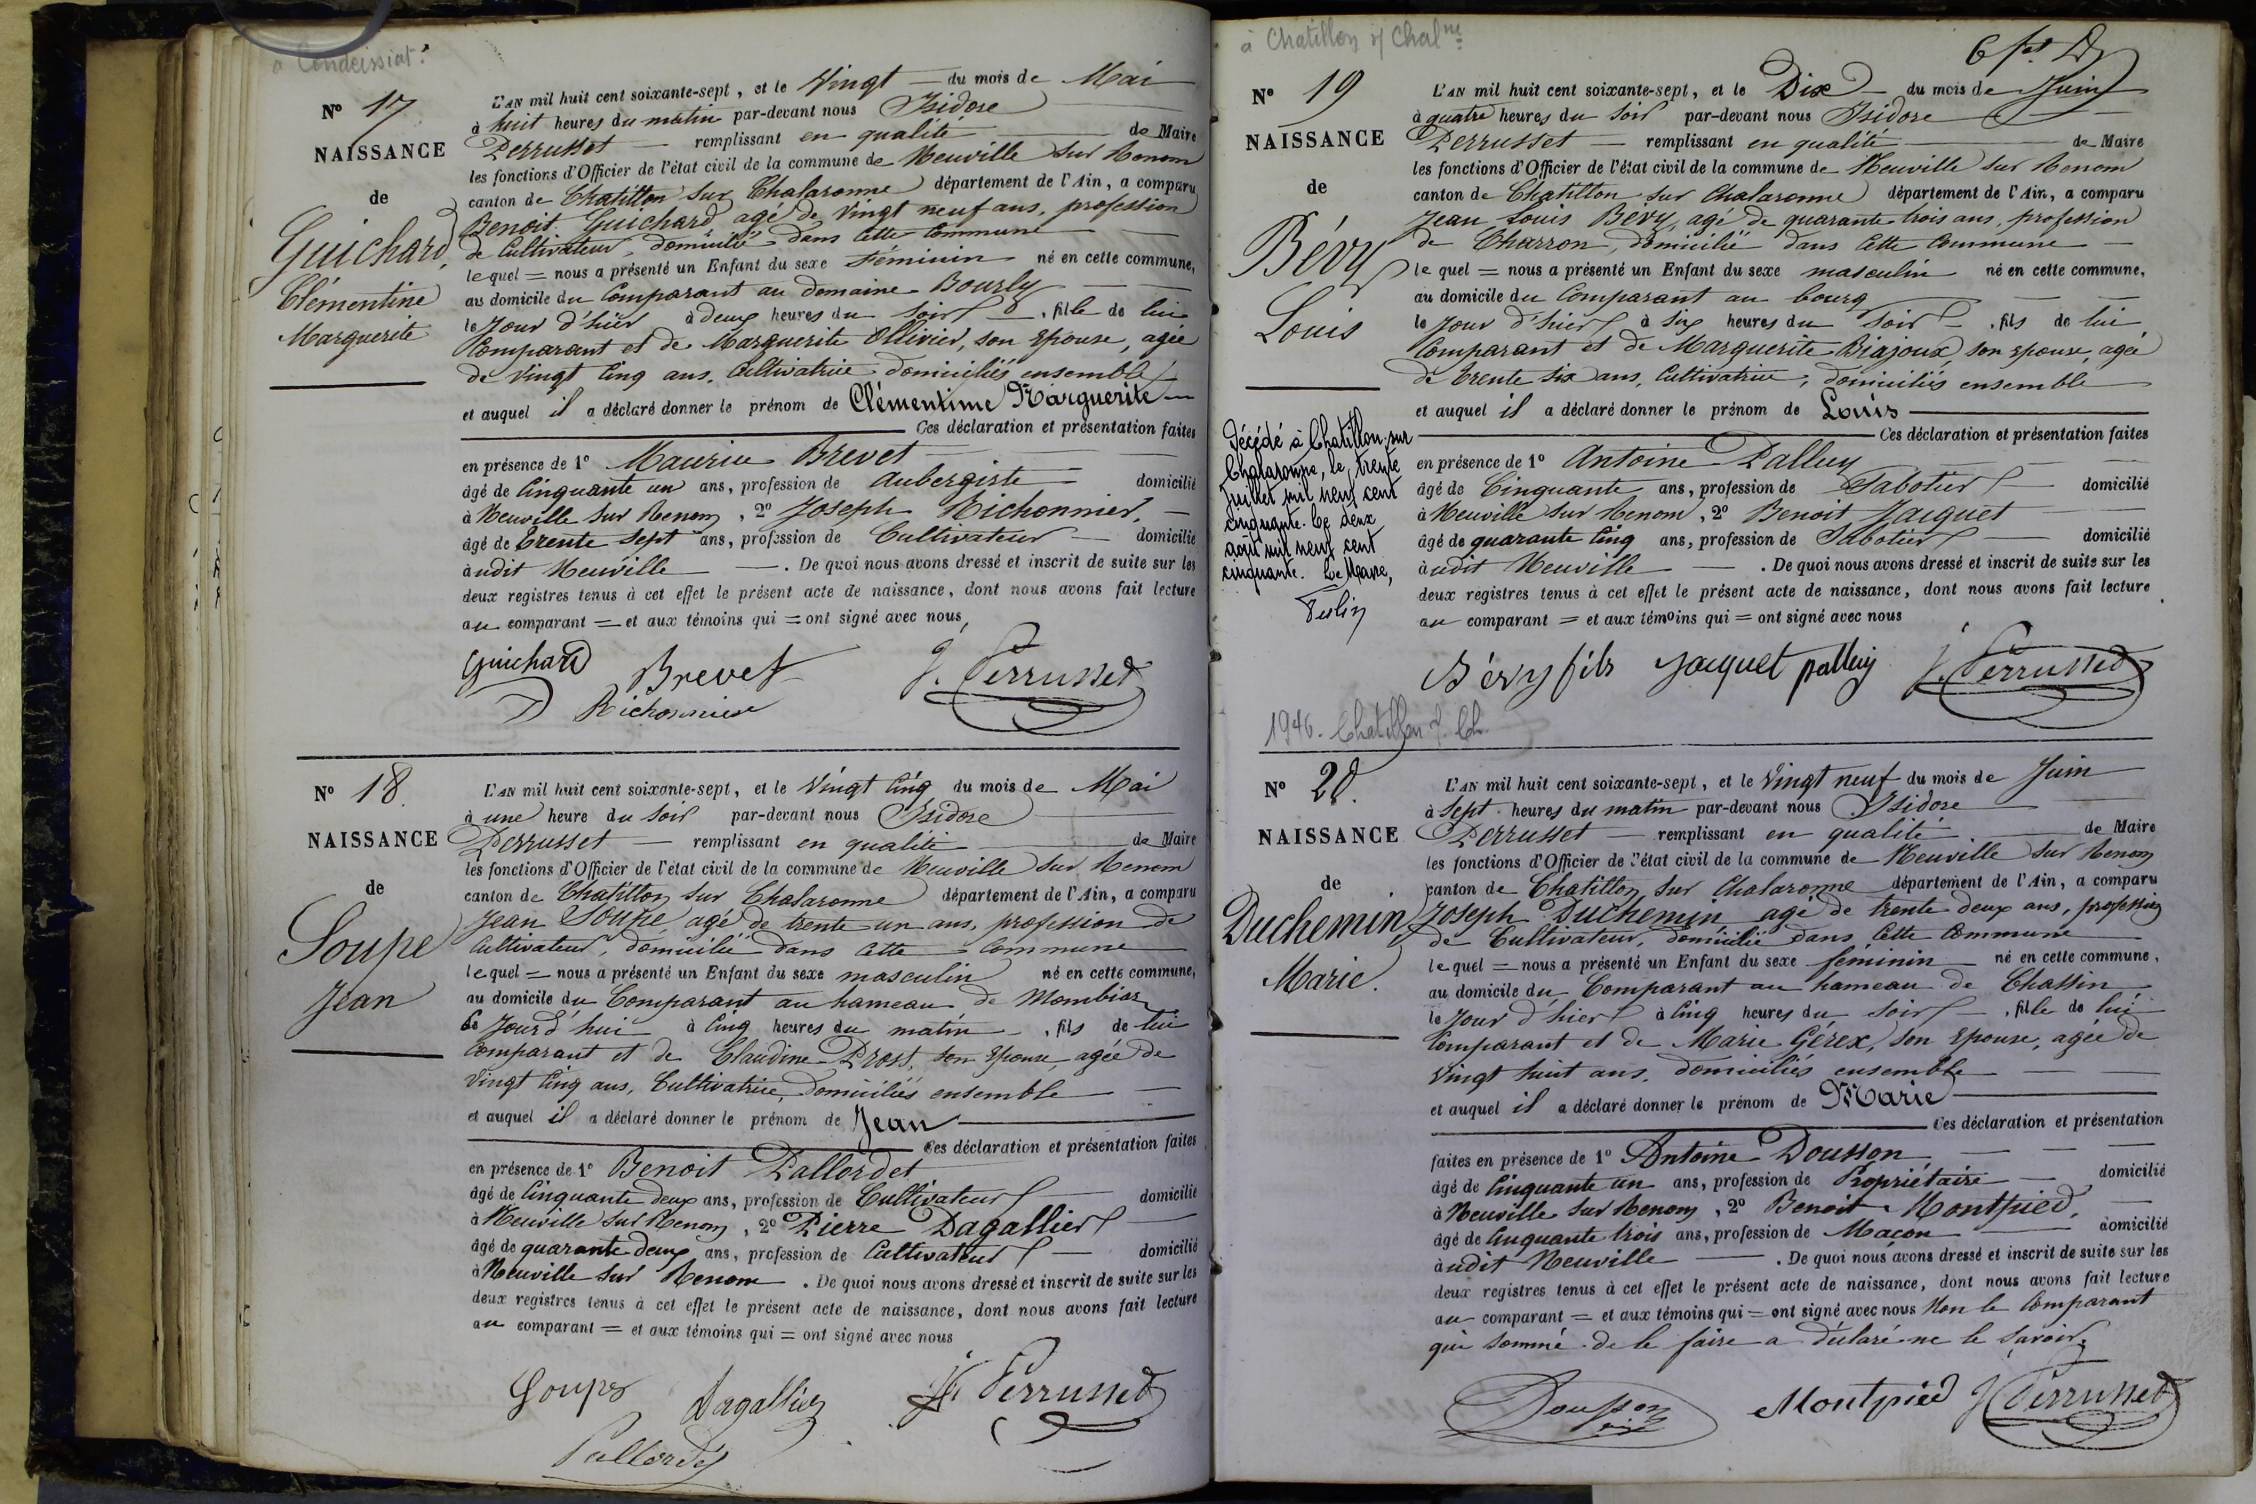 a Condeissiat
N° 17
NAISSANCE
de
Guichard,
Clémentine
Marguerite
L'AN mil huit cent soixante-sept, et le Vingt du mois de Mai
à huit heures du matin par-devant nous Isidore
Perrusset remplissant en qualité de Maire
les fonctions d'Officier de l'état civil de la commune de Neuville sur Renom
canton de Chatillon sur Chalaronne département de l'Ain, a comparu
Benoit Guichard agé de vingt neuf ans, profession
de Cultivateur, domicilié dans cette commune
lequel = nous a présenté un Enfant du sexe féminin né en cette commune,
au domicile du Comparant au domaine Bourly
le Jour d'hier à deux heures du soir, fille de lui
Comparant et de Marguerite Ollivier, son épouse, agée
de vingt cinq ans, Cultivatrice domiciliés ensemble
et auquel il a déclaré donner le prénom de Clémentine Marguerite
Ces déclaration et présentation faites
en présence de 1° Maurice Brevet
âgé de Cinquante un ans, profession de Aubergiste domicilié
à Neuville sur Renom, 2° Joseph Richonnier,
âgé de trente sept ans, profession de Cultivateur domicilié
à udit Neuville. De quoi nous avons dressé et inscrit de suite sur les
deux registres tenus à cet effet le présent acte de naissance, dont nous avons fait lecture
au comparant = et aux témoins qui = ont signé avec nous,
Guichard Brevet J. Perrusset
Richonnier
N° 18.
NAISSANCE
de
Soupe
Jean
L'AN mil huit cent soixante-sept, et le Vingt Cinq du mois de Mai
à une heure du soir par-devant nous Isidore
Perrusset remplissant en qualité de Maire
les fonctions d'Officier de l'état civil de la commune de Neuville sur Renom
canton de Chatillon sur Chalaronne département de l'Ain, a comparu
Jean Soupe agé de trente un ans, profession de
Cultivateur, domicilié dans cette commune
lequel = nous a présenté un Enfant du sexe masculin né en cette commune,
au domicile du Comparant au hameau de Mombiar
Ce Jourd'hui à Cinq heures du matin, fils de lui
Comparant et de Claudine Prost, son épouse, agée de
vingt cinq ans, Cultivatrice, Domiciliés ensemble
et auquel il a déclaré donner le prénom de Jean
Ces déclaration et présentation faites
en présence de 1° Benoit Pallordet
âgé de Cinquante deux ans, profession de Cultivateur domicilié
à Neuville sur Renom, 2° Pierre Dagallier
âgé de quarante deux ans, profession de Cultivateur domicilié
à Neuville sur Renom. De quoi nous avons dressé et inscrit de suite sur les
deux registres tenus à cet effet le présent acte de naissance, dont nous avons fait lecture
au comparant = et aux témoins qui = ont signé avec nous
Soupe Dagallier J. Perrusset
Pallordet
à Chatillon s/ Chalne
N° 19
NAISSANCE
de
Bévy
Louis
L'AN mil huit cent soixante-sept, et le Dix du mois de Juin
à quatre heures du soir par-devant nous Isidore
Perrusset remplissant en qualité de Maire
les fonctions d'Officier de l'état civil de la commune de Neuville sur Renom
canton de Chatillon sur Chalaronne département de l'Ain, a comparu
Jean Louis Bévy, agé de quarante trois ans, profession
de Charron, domicilié dans cette Commune
lequel = nous a présenté un Enfant du sexe masculin né en cette commune,
au domicile du Comparant au bourg
le Jour d'hier à six heures du soir, fils de lui
Comparant et de Marguerite Biajoux, son épouse, agée
de trente six ans, Cultivatrice, domiciliés ensemble
et auquel il a déclaré donner le prénom de Louis
Ces déclaration et présentation faites
en présence de 1° Antoine Palluy
âgé de Cinquante ans, profession de Sabotier domicilié
à Neuville sur Renom, 2° Benoit Jacquet
âgé de quarante Cinq ans, profession de Sabotier domicilié
à udit Neuville. De quoi nous avons dressé et inscrit de suite sur les
deux registres tenus à cet effet le présent acte de naissance, dont nous avons fait lecture
au comparant = et aux témoins qui = ont signé avec nous
Bévy fils Jacquet palluy J. Perrusset
Décédé à Chatillon-sur
Chalaronne, le trente
juillet mil neuf cent
cinquante. Le deux
août mil neuf cent
cinquante. Le Maire,
1946. Chatillon s. Ch.
N° 20.
NAISSANCE
de
Duchemin,
Marie.
L'AN mil huit cent soixante-sept, et le Vingt neuf du mois de Juin
à Sept heures du matin par-devant nous Isidore
Perrusset remplissant en qualité de Maire
les fonctions d'Officier de l'état civil de la commune de Neuville sur Renom
canton de Chatillon sur Chalaronne département de l'Ain, a comparu
Joseph Duchemin agé de trente deux ans, profession
de Cultivateur, domicilié dans cette Commune
lequel = nous a présenté un Enfant du sexe féminin né en cette commune,
au domicile du Comparant au hameau de Chassin
le Jour d'hier à Cinq heures du soir, fille de lui
Comparant et de Marie Gérex, son épouse, agée de
vingt huit ans, domiciliés ensemble
et auquel il a déclaré donner le prénom de Marie
Ces déclaration et présentation
faites en présence de 1° Antoine Dousson
âgé de Cinquante un ans, profession de Propriétaire domicilié
à Neuville sur Renom, 2° Benoit Montpied,
âgé de Cinquante trois ans, profession de Macon domicilié
à udit Neuville. De quoi nous avons dressé et inscrit de suite sur les
deux registres tenus à cet effet le présent acte de naissance, dont nous avons fait lecture
au comparant = et aux témoins qui = ont signé avec nous Non le Comparant
qui sommé de le faire a déclaré ne le savoir.
Dousson Montpied J. Perrusset